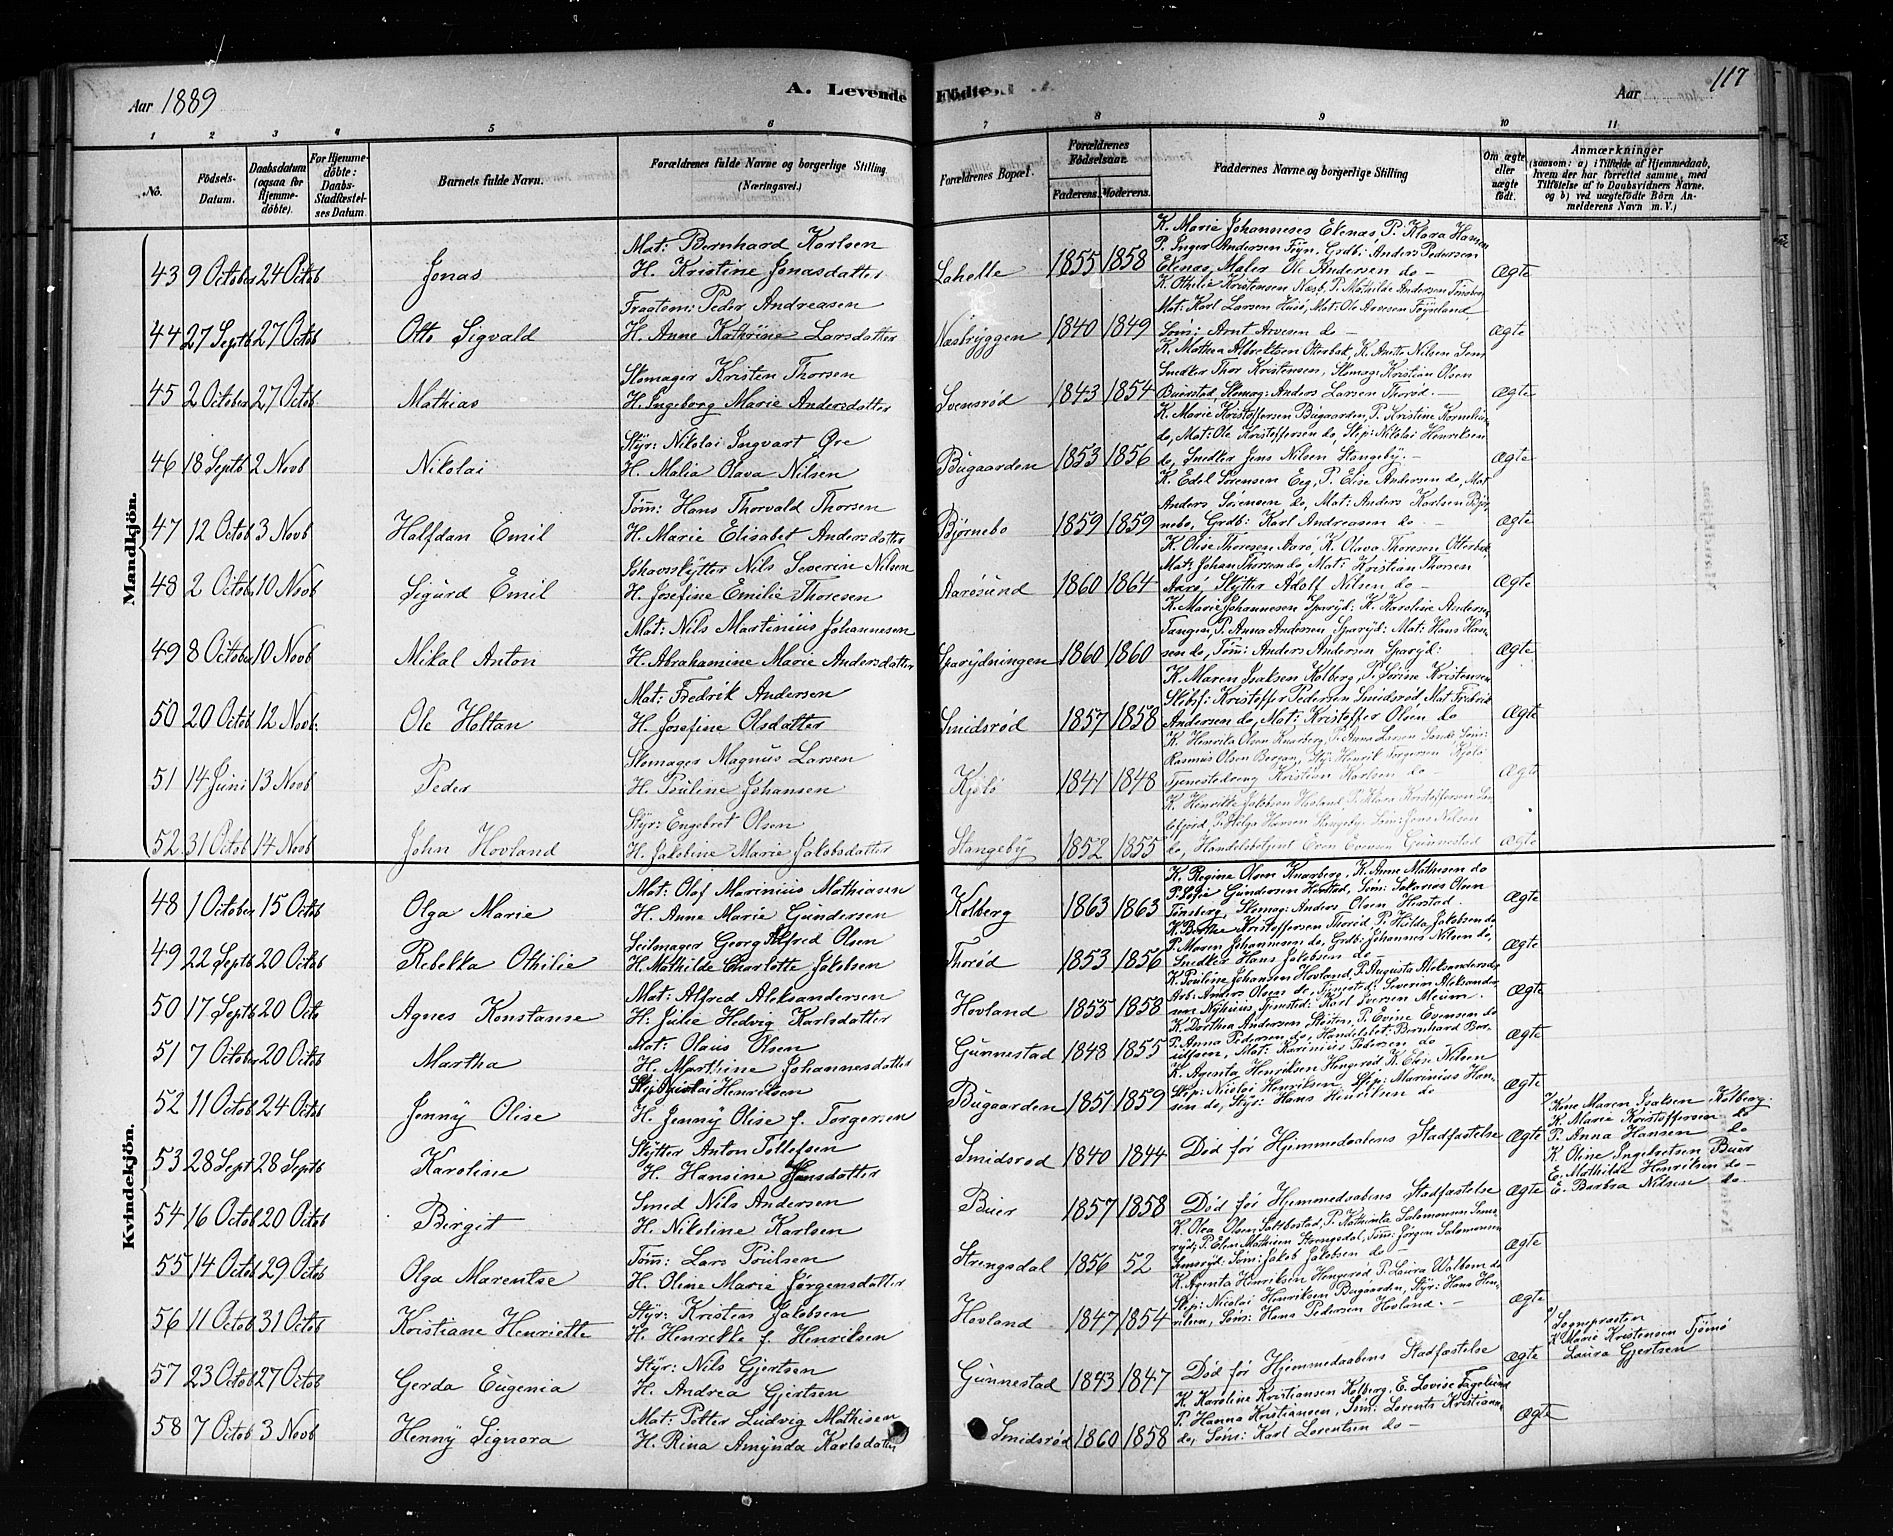 Aar 1889
A. Levende Födte.
Aar
117
1 2 3 4 5 6 7 8 9 10 11
No.
Födsels-Datum.
Daabsdatum (ogsaa for Hjemmedöbte).
For Hjemmedöbte: Daabs-Stadfæstelses Datum.
Barnets fulde Navn.
Forældrenes fulde Navne og borgerlige Stilling (Næringsvei.)
Forældrenes Bopæl.
Forældrenes Födselsaar.
Faderens. Moderens.
Faddernes Navne og borgerlige Stilling
Om ægte eller uægte födt.
Anmærkninger
(saasom: a) i Tilfælde af Hjemmedaab, hvem der har forrettet samme, med Tilföielse af to Daabsvidners Navne, og b) ved uægtefödte Börn Anmelderens Navn m. V.)
Mandkjön.
43 9 October 24 Octob Jonas
Mat: Bernhard Karlsen
H. Kristine Jonasdatter
Lahelle 1855 1858
K. Marie Johanneses Ekenæs P. Klara Hansen
P. Inger Andersen Föyn, Grdb: Anders Pedersen
Ekenæs, Maler Ole Andersen do –
Ægte
44 27 Septb 27 Octob Otto Sigvald
Fragtem: Peder Andreasen
H. Anne Kathrine Larsdatter
Næsbryggen 1840 1849
K. Othilie Kristensen Næsb, P. Mathilde Andersen Tönsberg
Mat: Karl Larsen Husö, Mat: Ole Arvesen Föyneland
Söm: Arnt Arvesen do –
Ægte
45 2 October 27 Octob Mathias
Skomager Kristen Thorsen
H. Ingeborg Marie Andersdatter
Svensröd 1843 1854
K. Mathea Albrektsen Otterbæk, K. Anette Nilsen
Snedker Thor Kristensen, Skomag: Kristian Olsen
Buerstad, Skomag: Anders Larsen Thoröd –
Ægte
46 18 Septb 2 Novb Nikolai
Styr: Nikolai Ingvart Öre
H. Malia Olava Nilsen
Bugaarden 1853 1856
K. Marie Kristoffersen Bugaarden, P. Kristine Kornelius
do, Mat: Ole Kristoffersen do, Skip: Nikolai Henriksen
do, Snedker Jens Nilsen Stangeby. –
Ægte
47 12 Octob 3 Novb Halfdan Emil
Töm: Hans Thorvald Thorsen
H. Marie Elisabet Andersdatter
Björnebo 1859 1859
K. Edel Sörensen Eeg, P. Elise Andersen do, Mat
Anders Sörensen do, Mat: Anders Karlsen Björ-
nebo, Grdb: Karl Andreasen do –
Ægte
48 2 Octob 10 Novb Sigurd Emil
Ishavsskytter Nils Severin Nilsen
H. Josefine Emilie Thoresen
Aarösund 1860 1864
K. Olise Thoresen Aarö, K. Olava Thoresen Otterbæk
Mat: Johan Thorsen do, Mat: Kristian Thorsen
Aarö, Skytter Adolf Nilsen do –
Ægte
49 8 October 10 Novb Mikal Anton
Mat: Nils Martinius Johannesen
H. Abrahamine Marie Andersdatter
Sparydningen 1860 1860
K. Marie Johannesen Sparyd: K. Karoline Anders
Tangen, P. Anna Andersen, Sparyd: Mat: Hans Han-
sen do, Töm: Anders Andersen Sparyd:
Ægte
50 20 Octob 12 Novb: Ole Holtan
Mat: Fredrik Andersen
H. Josefine Olsdatter
Smidsröd 1857 1858
K. Maren Isaksen Kolberg, P. Sörine Kristensen
Skibsf: Kristoffer Pedersen Smidsröd, Mat Fredrik
Andersen do, Mat: Kristoffer Olsen do
Ægte
51 14 Juni 13 Novb Peder
Skomager Magnus Larsen
H. Pouline Johansen
Kjölö 1841 1848
K. Henrika Olsen Knarberg, P. Anna Larsen
Rasmus Olsen Bergan, Styr Henrik Torgersen Kjölö
Tjenestedreng Kristian Karlsen do –
Ægte
52 31 Octob 14 Novb John Hovland
Styr: Engebret Olsen
H. Jakobine Marie Jakobsdatter
Stangeby 1852 1855
K. Henritte Jakobsen Hovland, P. Klara Kristoffersen San-
defjord, P. Helga Hansen Stangeby, Söm: Jens Nilsen
do, Handelsbetjent Even Evensen Gunnestad
Ægte
Kvindekjön.
48 1 October 15 Octob Olga Marie
Mat: Olaf Marinius Mathiasen
H. Anne Marie Gundersen
Kolberg 1863 1863
K. Regine Olsen Knarberg, K. Anne Mathisen do
P. Sofie Gundersen Herstad, Söm: Sakarias Olsen
Tönsberg, Skomag: Anders Olsen Herstad.
Ægte
49 22 Septb 20 Octob Rebekka Othilie
Seilmager Georg Alfred Olsen
H. Mathilde Charlotte Jakobsen
Thoröd 1853 1856
K. Berthe Kristoffersen Thoröd, P. Hilda Jakobsen do
P. Maren Johannesen do, Grdb: Johannes Nilsen do,
Snedker Hans Jakobsen do –
Ægte
50 17 Septb 20 Octo Agnes Konstanse
Mat: Alfred Aleksandersen
H: Julie Hedvig Karlsdatter
Hovland 1855 1858
K. Pouline Johansen Hovland, P. Augusta Aleksandersen do
Arb: Anders Olsen do, Tjenestd: Severin Aleksander
sen Nyhuus, Tjenestd: Karl Iversen Meum.
Ægte
51 7 October 20 Octob Martha
Mat: Olaus Olsen
H. Marthine Johannesdatter
Gunnestad 1848 1855
K. Dorthea Andersen Skisten, P. Evine Evensen do
P. Anna Pedersen do, Handelsbet: Bernhard Ber-
ntsen, Mat: Karinius Pedersen do
Ægte
52 11 Octob 24 Octob Jenny Olise
Skip: Nicolai Henriksen
H. Jenny Olise f. Torgersen
Bugaarden 1857 1859
K. Agenta Henriksen Hengeröd K. Elise Nilsen
Skip: Nicolai Henriksen, Skip: Marinius Han-
sen do, Styr: Hans Henrilsen do
Ægte
53 28 Sept 28 Septb Karoline
Skytter Anton Tollefsen
H. Hansine Hansdatter
Smidsröd 1840 1844
Död för Hjemmedaabens Stadfæstelse
Ægte
Kone Maren Isaksen Kolberg.
K. Marie Kristoffersen do
P. Anna Hansen do
54 16 Octob 20 Octob Birgit
Smed Nils Andersen
H. Nikoline Karlsen
Buer 1857 1858
Död för Hjemmedaabens Stadfæstelse
Ægte
K Oline Ingebretsen Buer
E. Mathilde Henriksen do –
E. Barbra Nilsen do –
55 14 Octob 29 Octob Olga Marentse
Töm: Lars Poulsen
H. Oline Marie Jörgensdatter
Strengsdal 1856 52
K. Olea Olsen Sakbestad, P. Kathinka Salomonsen Tems-
ryd, P. Elen Mathisen Strengsdal, Töm: Jörgen Salomonsen
Temsryd, Söm: Jakob Jakobsen do –
Ægte
56 11 Octob 31 Octob Kristiane Henriette
Styr: Kristen Jakobsen
H. Henrikke f. Henriksen
Hovland 1847 1854
K. Agenta Henriksen Hengeröd, P. Laura Wallem do
Skip: Nicolai Henriksen Bugaarden, Styr: Hans Hen-
rilsen, Söm: Hans Pedersen Hovland. –
Ægte
57 23 Octob 27 Octob Gerda Eugenia
Styr: Nils Gjertsen
H. Andrea Gjertsen
Gunnestad 1843 1847
Död för Hjemmedaabens Stadfæstelse
Ægte
Sognepræsten
K Marie Kristensen Tjömö
Laura Gjertsen
58 7 Octob 3 Novb Henny Signora
Mat: Petter Ludvig Mathisen
H. Rina Amynda Karlsdatter
Smidsröd 1860 1858
K. Karoline Kristiansen Kolberg, E. Lovise Fagelund
P. Hanna Kristiansen, Söm: Lorents Kristians
do, Söm: Karl Lorentsen do –
Ægte